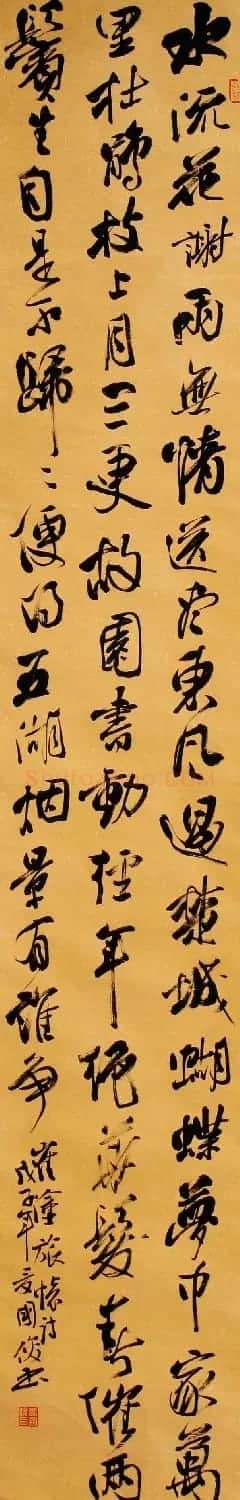 水流花謝兩無情送尽東風過楚城蝴蝶夢中家萬
里杜鵑枝上月三更故園書動經年絕華髮春催两
鬢生自是不歸々便得五湖烟景有誰爭
崔塗旅懷詩
戊子年國俊书